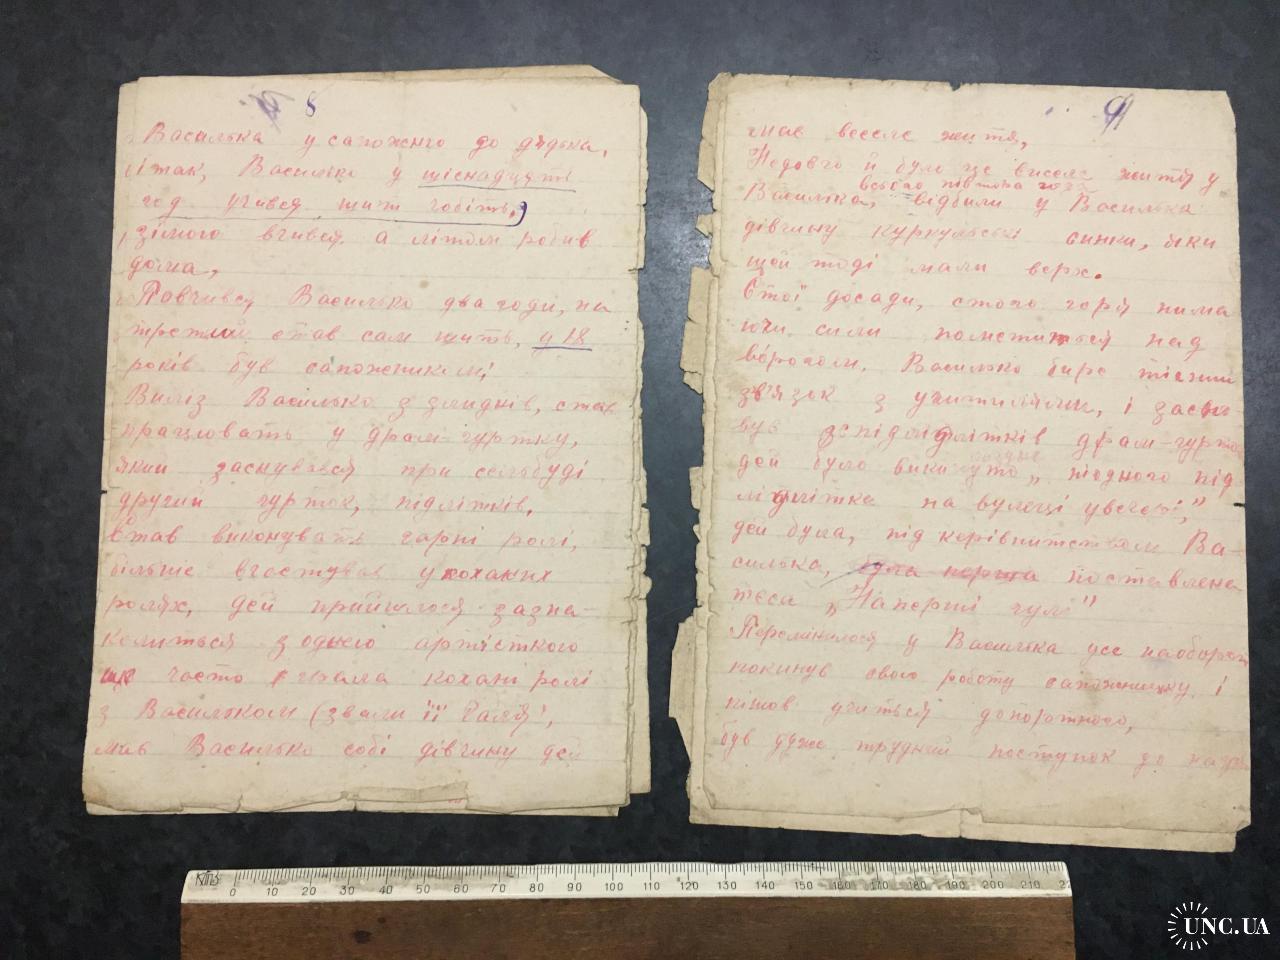 8
Василька у сапожнго до дядька,
і так, Василько у шіснадцять
год учився шит чобіть,
зімою вчився, а літом робив
дома,
Повчився Василько два годи, на
третій став сам шить, у 18
років був сапожником,
Виліз Василько з злиднів, став
працювать у драм-гуртку,
який заснувався при сельбуді
другий гурток, підлітків,
Став виконувать гарні ролі,
більше вчастував у коханих
ролях, дей прийшлося зазна-
комиться з однею артісткого
часто грала кохані ролі
з Васильком (звали її Галя),
мав Василько собі дівчину дей
9
має веселе життя,
Недовго й було це виселе життя у
всього півтора года
Василька, відбили у Василька
дівчину куркульські синки, яки
щей тоді мали верх.
Стої досади, стого горя нима
ючи сили помститься над
ворогом. Василько бире тісний
звязок з учитилями, і засну-
вув зспідлітків драм-гурто
дей було викинуто „ ніодного під
літка на вулеці увечері,"
дей була, під керівництвом Ва-
силька, була перша поставлена
пєса „На перші гулі"
Перемінилося у Василька усе наоборот
покинув свою роботу сапожницку і
пішов учиться допорожного,
був дуже трудний поступок до
КТПЗ
0 10 20 30 40 50 60 70 80 90 100 110 120 130 140 150 160 170 180 190 200 210 22
UNC.UA